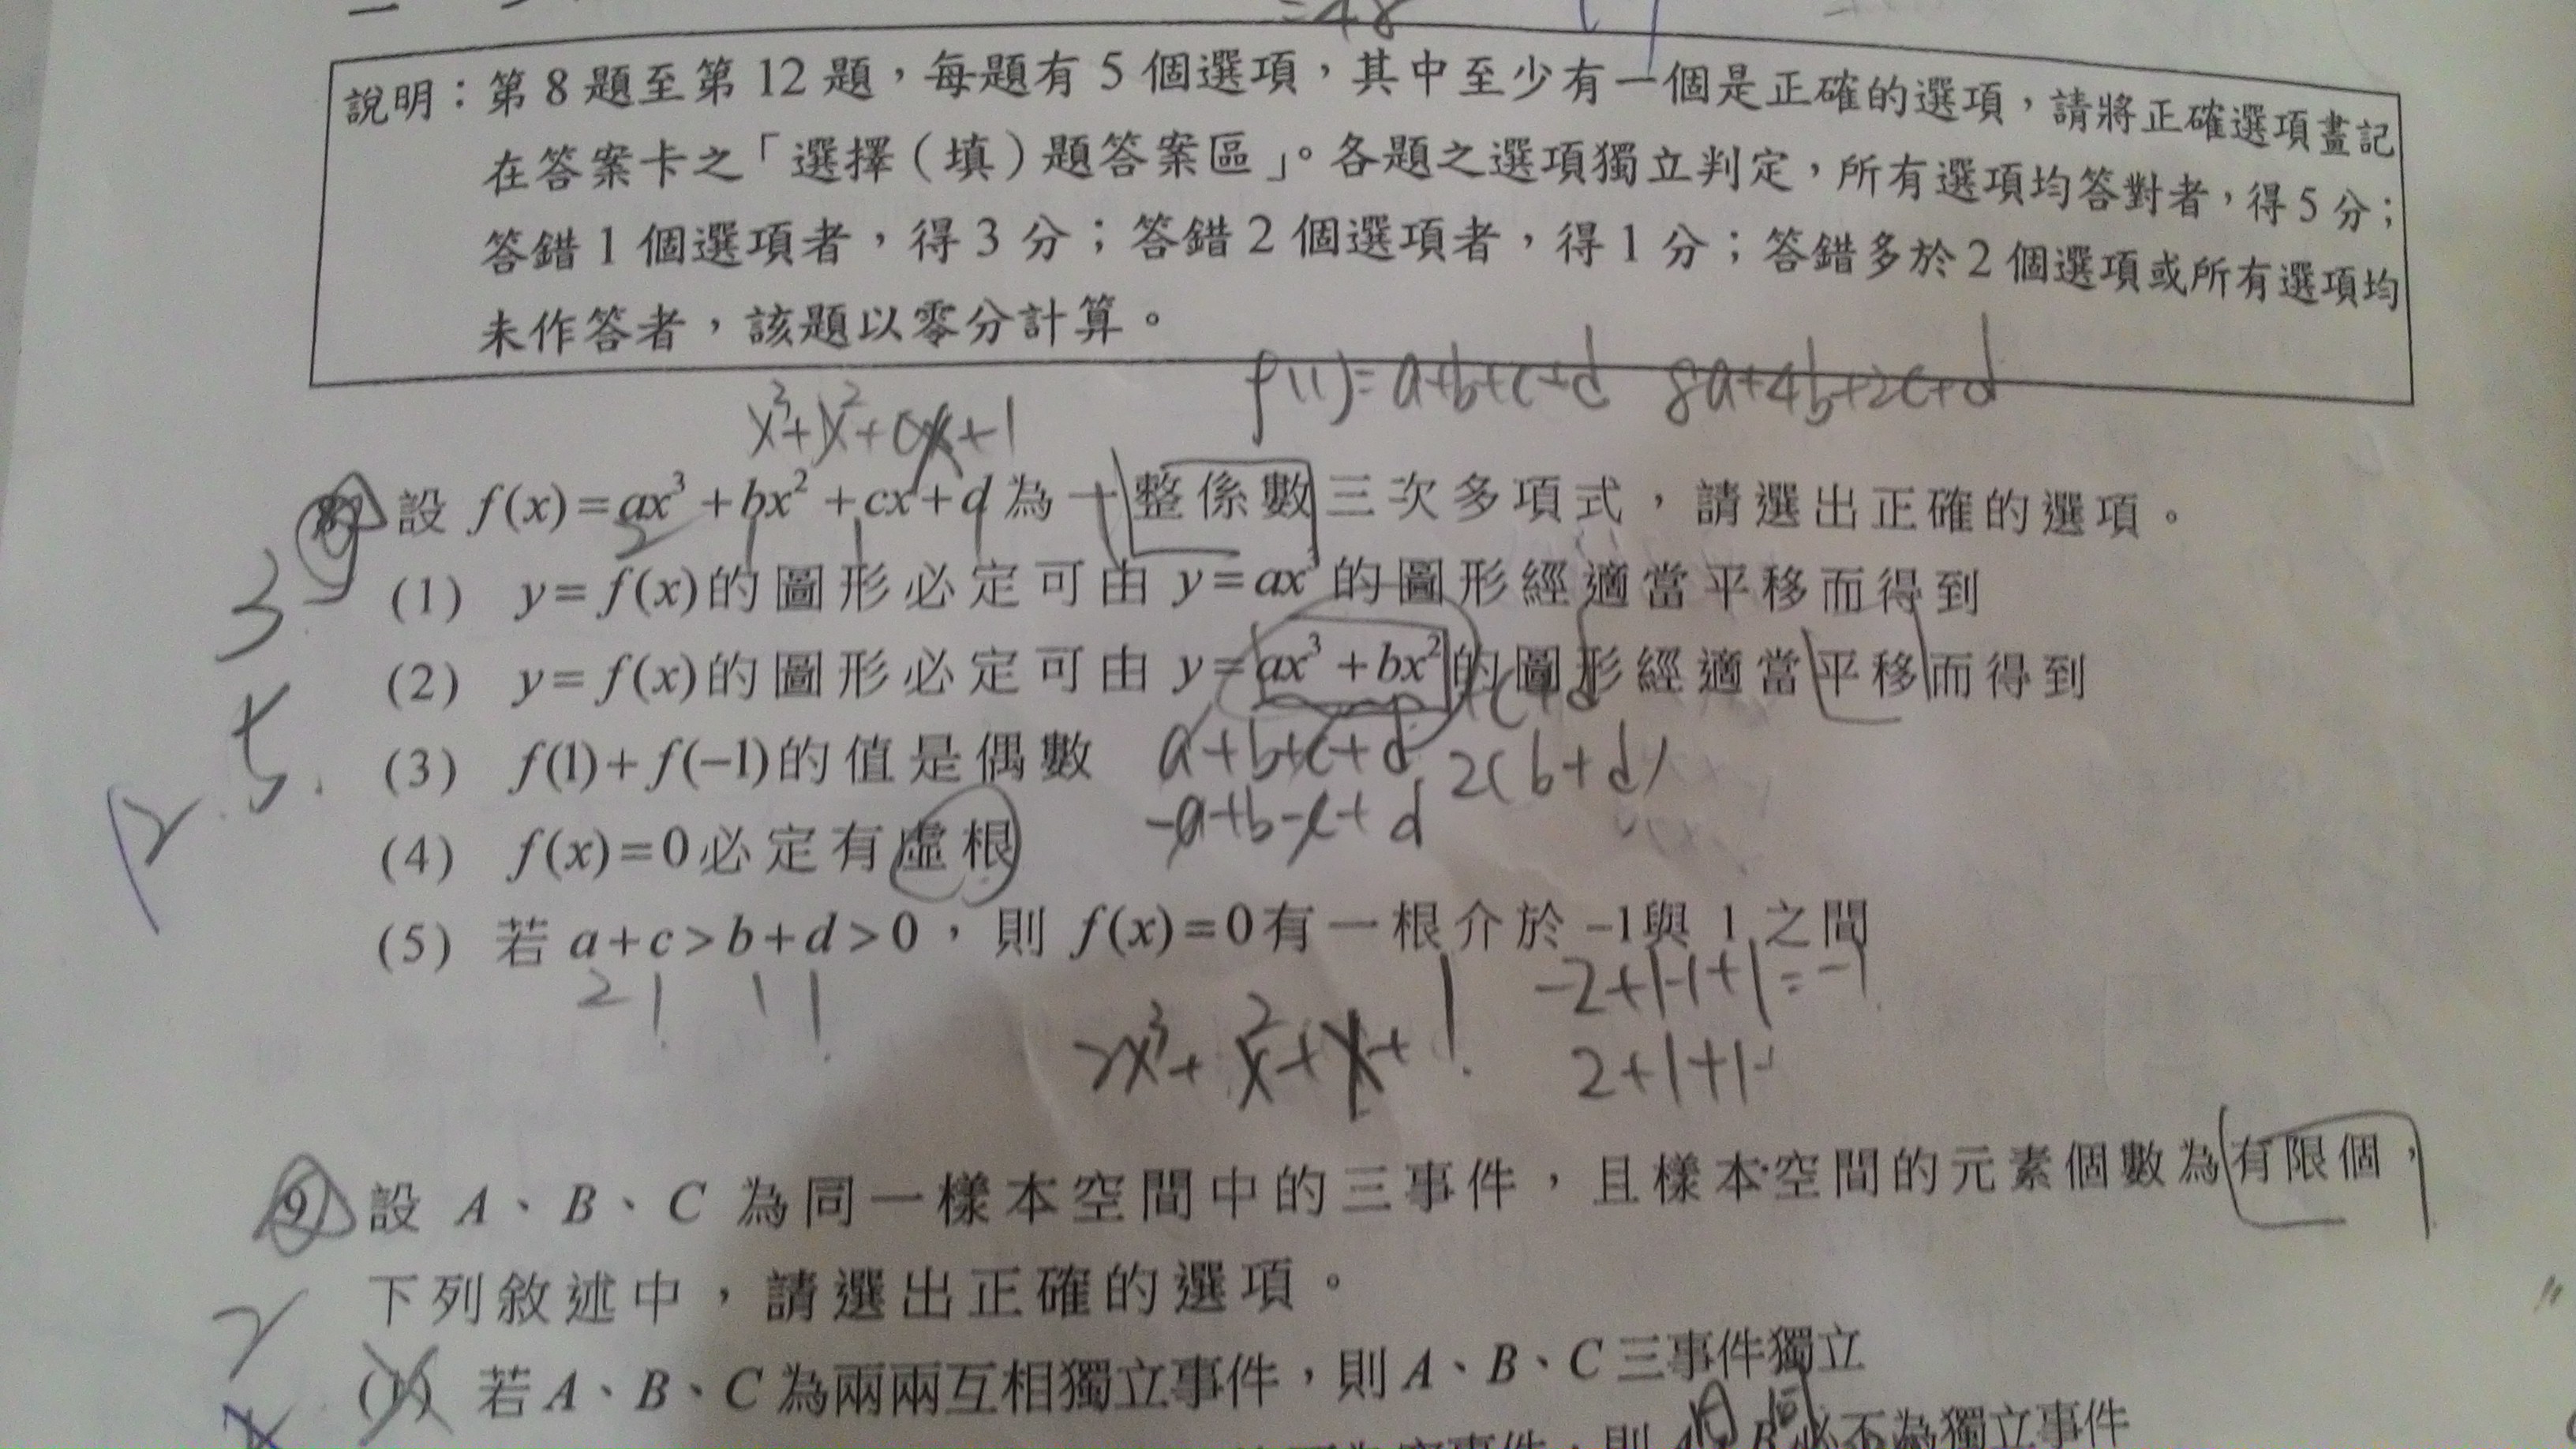 =48
說明：第 8 題至第 12 題，每題有 5 個選項，其中至少有一個是正確的選項，請將正確選項畫記
在答案卡之「選擇（填）題答案區」。各題之選項獨立判定，所有選項均答對者，得 5 分；
答錯 1 個選項者，得 3 分；答錯 2 個選項者，得 1 分；答錯多於 2 個選項或所有選項均
未作答者，該題以零分計算。
f(1)=a+b+c+d 8a+4b+2c+d
x³+x²+0x+1
設 f(x)=ax³+bx²+cx+d 為一整係數三次多項式，請選出正確的選項。
3
(1) y=f(x)的圖形必定可由 y=ax³ 的圖形經適當平移而得到
(2) y=f(x)的圖形必定可由 y=ax³+bx² 的圖形經適當平移而得到
5.
(3) f(1)+f(-1)的值是偶數 a+b+c+d 2(b+d)
-a+b-c+d
(4) f(x)=0必定有虛根
(5) 若 a+c>b+d>0，則 f(x)=0有一根介於 -1與 1 之間
2 1 1 1
-2+1-1+1=-1
2x³+x²+x+1
2+1+1+
9 設 A、B、C 為同一樣本空間中的三事件，且樣本空間的元素個數為有限個，
下列敘述中，請選出正確的選項。
2
(1) 若 A、B、C 為兩兩互相獨立事件，則 A、B、C 三事件獨立
事件，則 A、B 必不為獨立事件